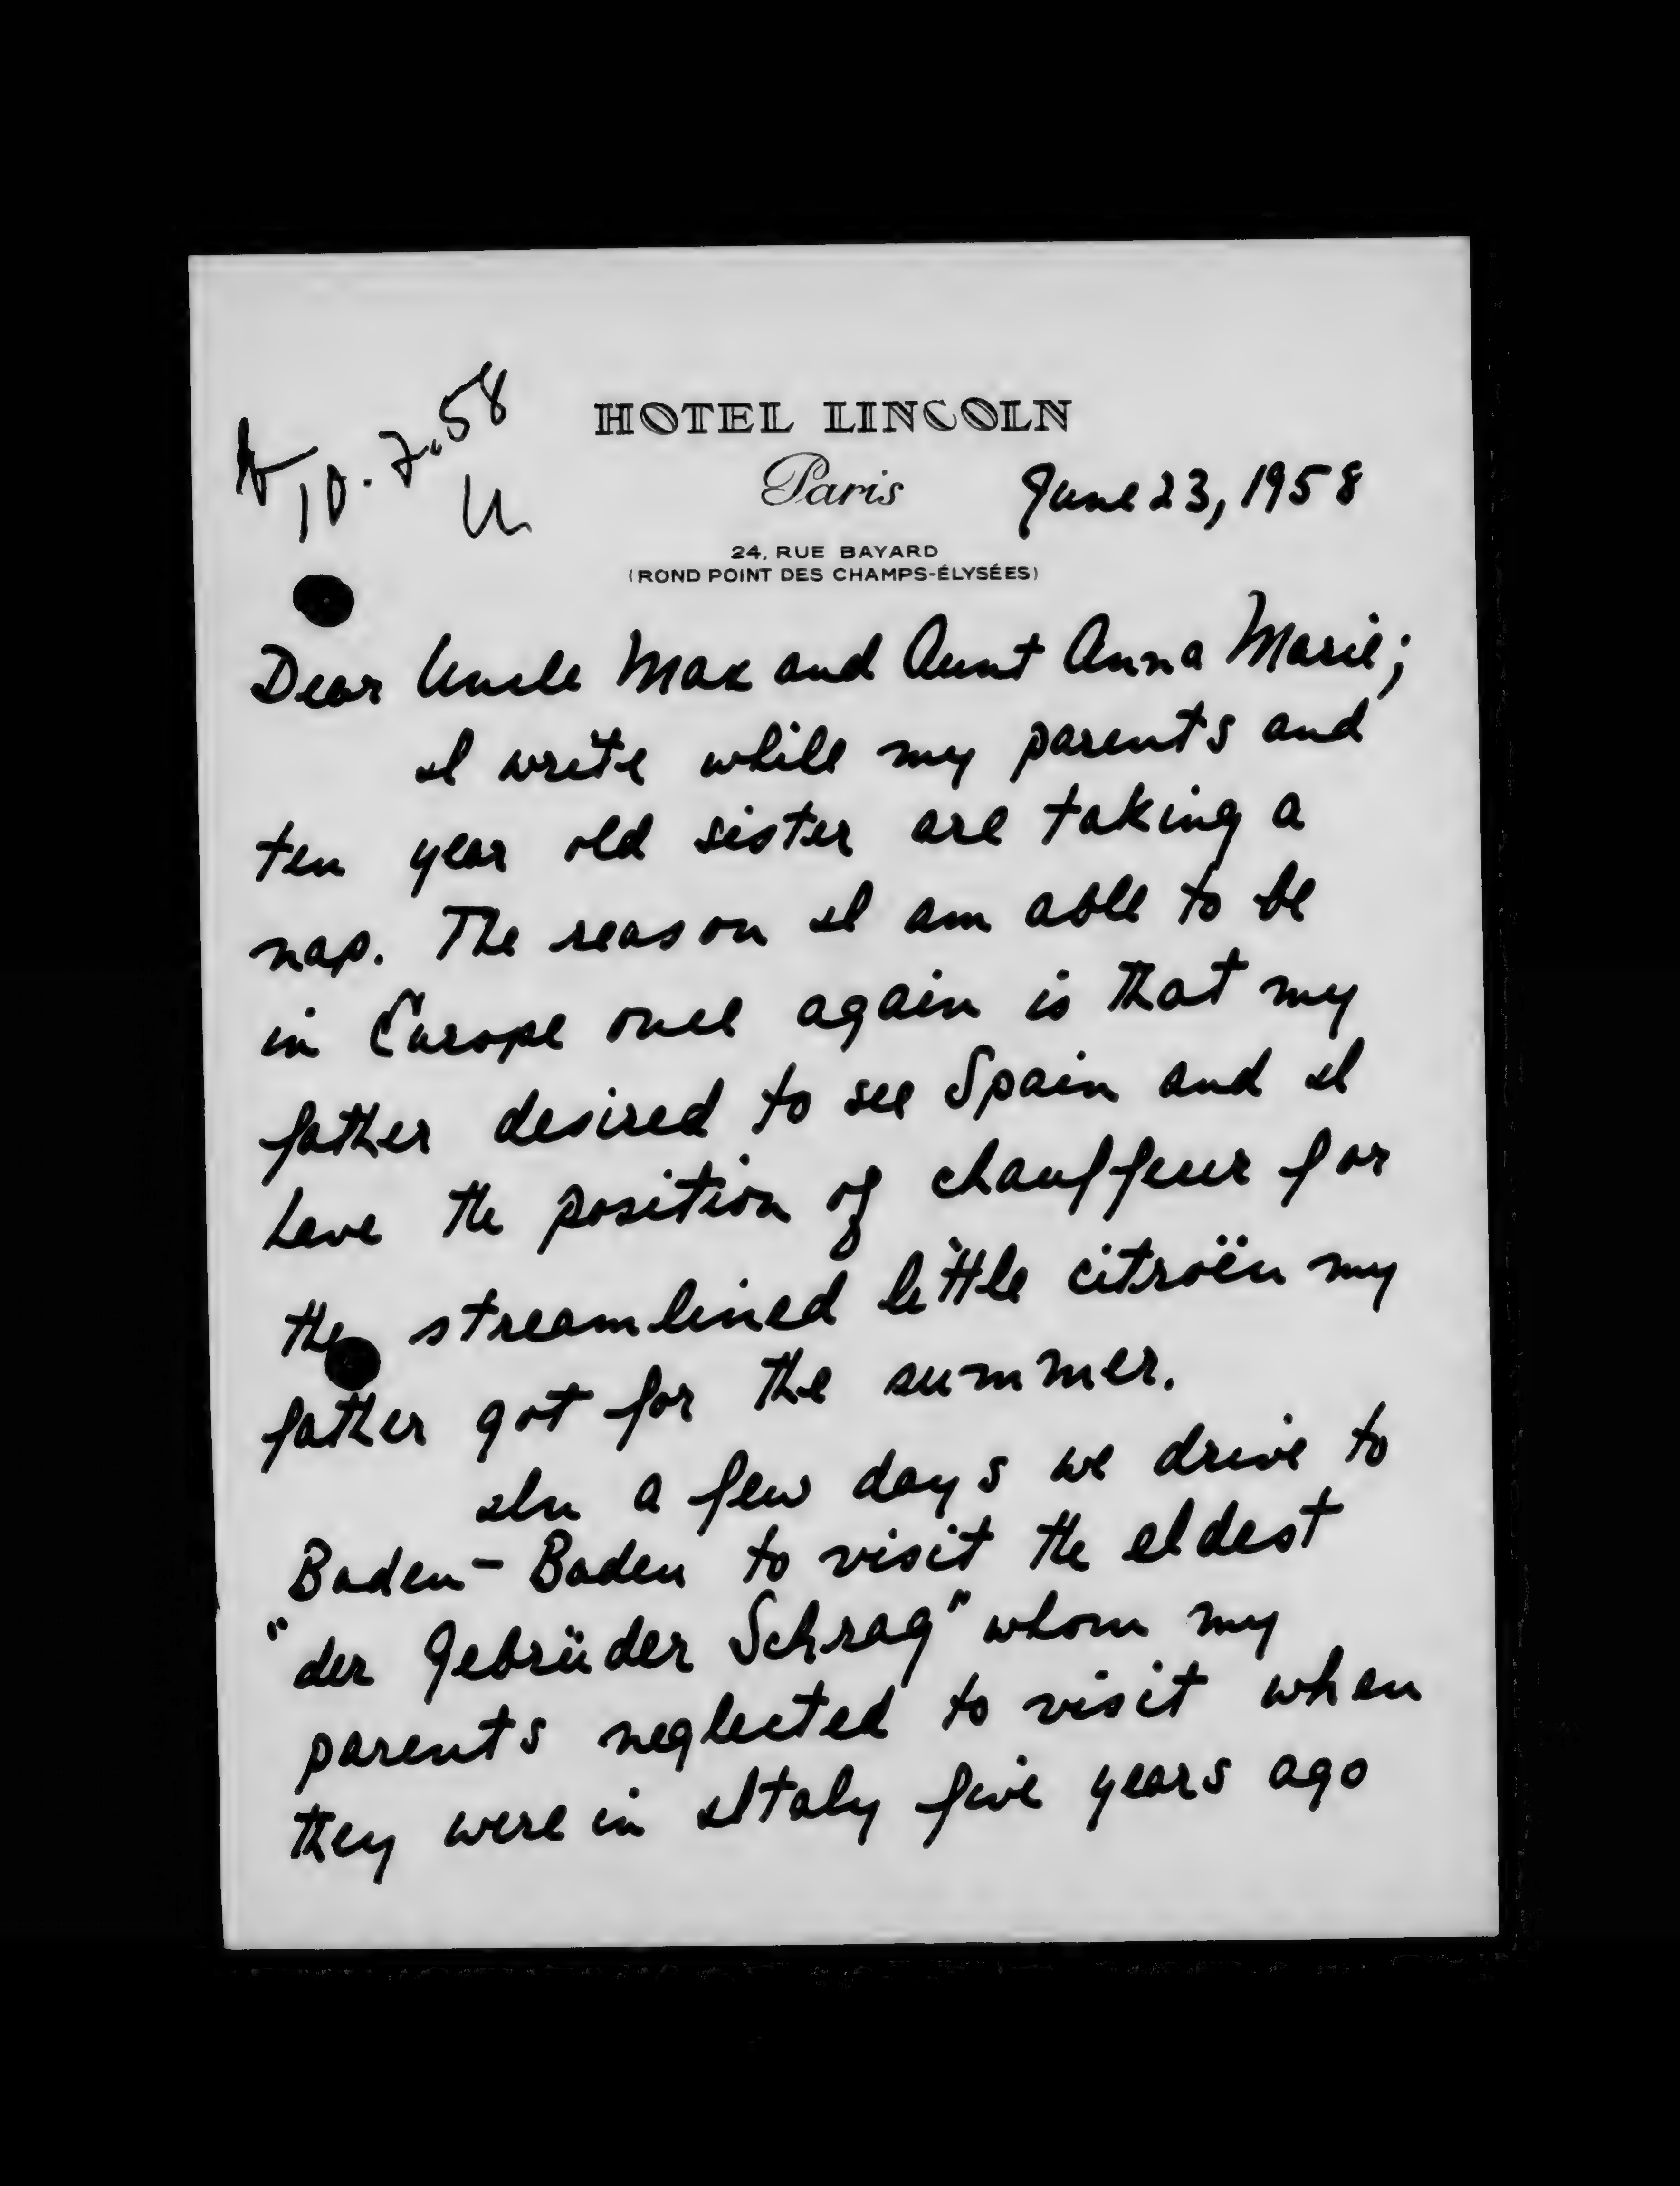 10.7.58
HOTEL LINCOLN
Paris
June 23, 1958
24, RUE BAYARD
(ROND POINT DES CHAMPS-ÉLYSÉES)
Dear Uncle Max and Aunt Anna Marie;
I write while my parents and
ten year old sister are taking a
nap. The reason I am able to be
in Europe once again is that my
father desired to see Spain and I
have the position of chauffeur for
the streamlined little citroën my
father got for the summer.
In a few days we drive to
Baden-Baden to visit the eldest
"der Gebrüder Schrag" whom my
parents neglected to visit when
they were in Italy five years ago